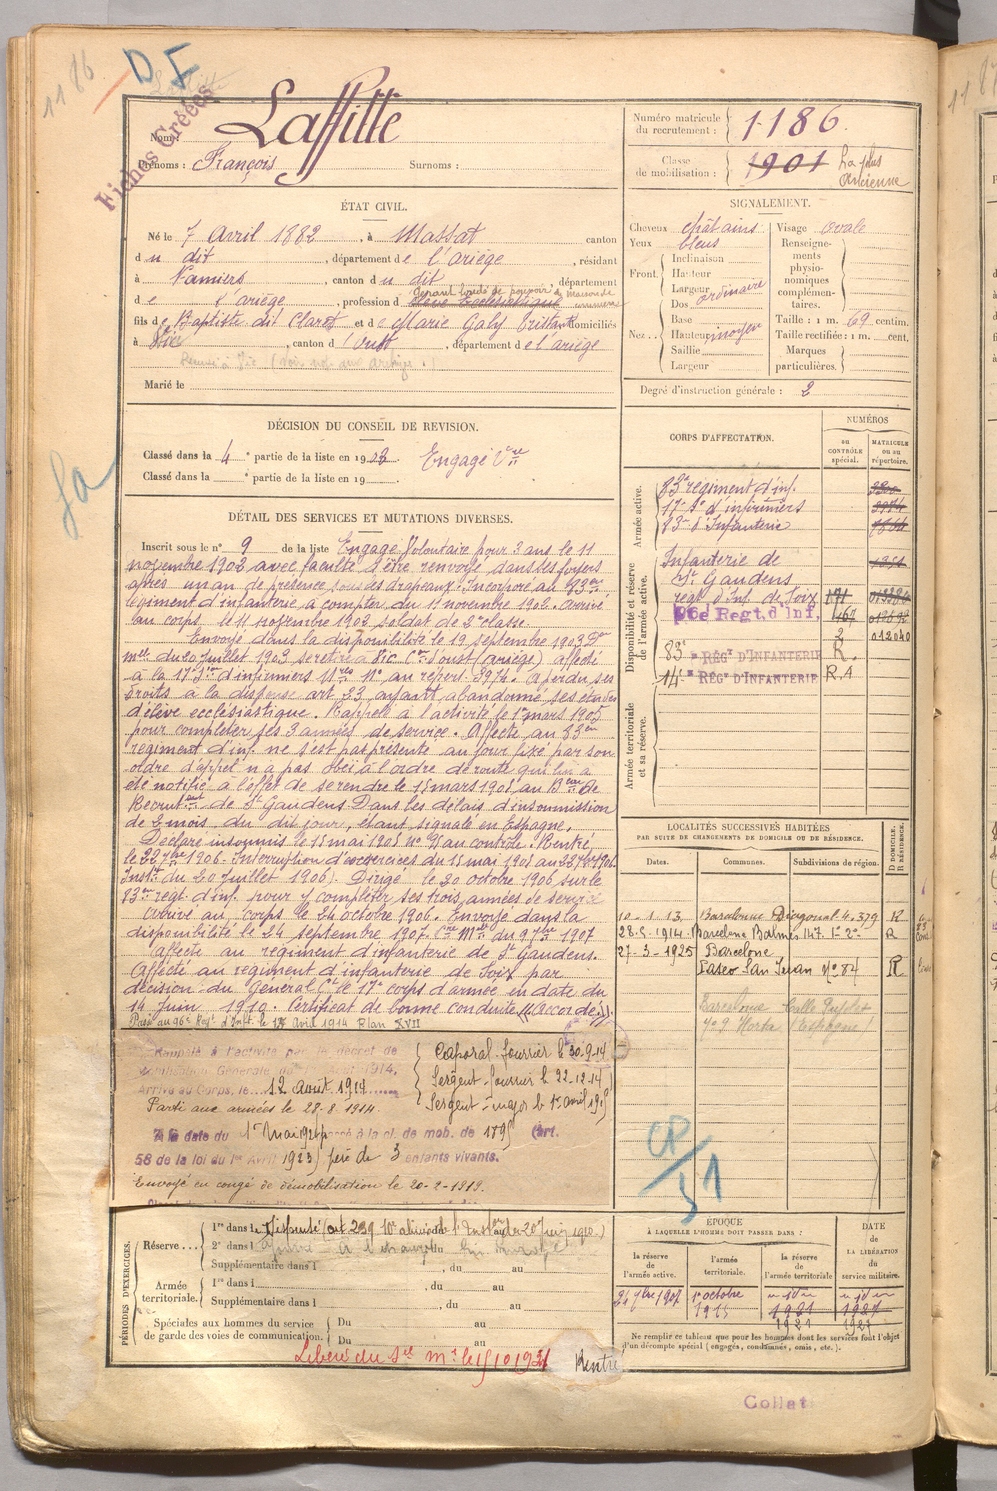 1186
D I
Fiches Créées
Nom : Laffitte
Prénoms : François Surnoms :
Numéro matricule du recrutement : 1186.
Classe de mobilisation : 1901 La plus ancienne
ÉTAT CIVIL.
Né le 7 avril 1882, à Massat canton
du dit, département de l'ariège, résidant
à Pamiers, canton du dit département
de l'ariège, profession d élève Ecclésiastique
fils de Baptiste dit Claret et de Marie Galy Tristant domiciliés
à Vic, canton d'oust, département de l'ariège
Marié le
SIGNALEMENT.
Cheveux châtains Visage ovale
Yeux bleus
Front. Inclinaison Hauteur Largeur ordinaire
Nez. Dos Base Hauteur moyen Saillie Largeur
Renseignements physionomiques complémentaires.
Taille : 1 m. 69 centim.
Taille rectifiée : 1 m. cent.
Marques particulières.
Degré d'instruction générale : 2
DÉCISION DU CONSEIL DE REVISION.
Classé dans la 4e partie de la liste en 1903. Engagé Vre
Classé dans la e partie de la liste en 19
DÉTAIL DES SERVICES ET MUTATIONS DIVERSES.
Inscrit sous le n° 9 de la liste Engagé Volontaire pour 3 ans le 11
novembre 1902 avec faculté d'être renvoyé dans ses foyers
après un an de présence sous les drapeaux. Incorporé au 83eme
régiment d'infanterie à compter du 11 novembre 1902. arrivé
au corps le 11 novembre 1902 soldat de 2e classe.
Envoyé dans la disponibilité le 19 septembre 1903
mlle du 20 juillet 1903 se retire à Vic Con d'oust (ariège) affecté
à la 17e Son d'infirmiers Mres No au répert. 3974. a perdu ses
droits à la dispense art. 23 ayant abandonné ses études
d'élève ecclésiastique. Rappelé à l'activité le 1er mars 1905
pour compléter ses 3 années de service. Affecté au 83eme
régiment d'inf. ne s'est pas présenté au jour fixé par son
ordre d'appel n'a pas obéi à l'ordre de route qui lui a
été notifié à l'effet de se rendre le 15 mars 1905 au Beau de
Recrutmt de St Gaudens Dans les délais d'insoumission
de 2 mois du dit jour, étant signalé en Espagne.
Déclaré insoumis le 15 mai 1905 No 91 au contrôle. Rentré
le 22 7bre 1906. Interruption de services du 15 mai 1905 au 22 7bre 1906
Inston du 20 juillet 1906). Dirigé le 20 octobre 1906 sur le
83eme régt d'inf. pour y compléter ses trois années de service
arrivé au corps le 24 octobre 1906. Envoyé dans la
disponibilité le 24 septembre 1907. Cre Mlle du 9 7bre 1907
Affecté au régiment d'infanterie de St Gaudens.
Affecté au régiment d'infanterie de Foix par
décision du Général Ct le 17e corps d'armée en date du
14 juin 1910. Certificat de bonne conduite "Accordé".
Passé au 96e Régt d'Inft. le 15 Avril 1914 Plan XVII
Rappelé à l'activité par le décret de
Mobilisation Générale du 1 Août 1914.
Arrivé au Corps, le 12 août 1914
Parti aux armées le 28-8-1914.
Caporal-fourrier le 30-9-14
Sergent-fourrier le 22-12-14
Sergent-major le 1er avril 1915
À la date du 1er Mai 1924 passé à la cl. de mob. de 1895 (art.
58 de la loi du 1er Avril 1923) père de 3 enfants vivants.
Envoyé en congé de démobilisation le 20-2-1919.
CORPS D'AFFECTATION.
NUMÉROS
au CONTRÔLE spécial.
MATRICULE ou au répertoire.
Armée active.
83e régiment d'inf.
17e Son d'infirmiers 3974
83me d'Infanterie
Disponibilité et réserve de l'armée active.
Infanterie de St Gaudens
régt d'inf. de Foix 171
96e Regt, d'Inf, 467
2 012040
83e RÉGt D'INFANTERIE R.
14e RÉGt D'INFANTERIE R.A
Armée territoriale et sa réserve.
LOCALITÉS SUCCESSIVES HABITÉES
PAR SUITE DE CHANGEMENTS DE DOMICILE OU DE RÉSIDENCE.
Dates. Communes. Subdivisions de région. D DOMICILE. R RÉSIDENCE.
10-1-13. Barcelone Diagonal 4.379 R
28.5-1914 Barcelona Balmes 147. 1° 2° R
27-3-1925 Barcelone
Paseo San Juan No 84 R
Barcelone Calle
Horta (Espagne)
CP/51
PÉRIODES D'EXERCICES.
Réserve... 1re dans le Dispensé (art. 239 10e alinéa de l'Inston du 20 juin 1910.)
2e dans l
Supplémentaire dans l , du au
Armée territoriale. 1re dans l , du au
Supplémentaire dans l , du au
Spéciales aux hommes du service de garde des voies de communication. Du au
Du au
Libéré du Sce Mre le 15 10 1931 Rentré
ÉPOQUE
À LAQUELLE L'HOMME DOIT PASSER DANS :
la réserve de l'armée active. l'armée territoriale. la réserve de l'armée territoriale
DATE DE LA LIBÉRATION du service militaire.
1er octobre 1915
1921 1927
Ne remplir ce tableau que pour les hommes dont les services font l'objet
d'un décompte spécial (engagés, condamnés, omis, etc.).
Collat